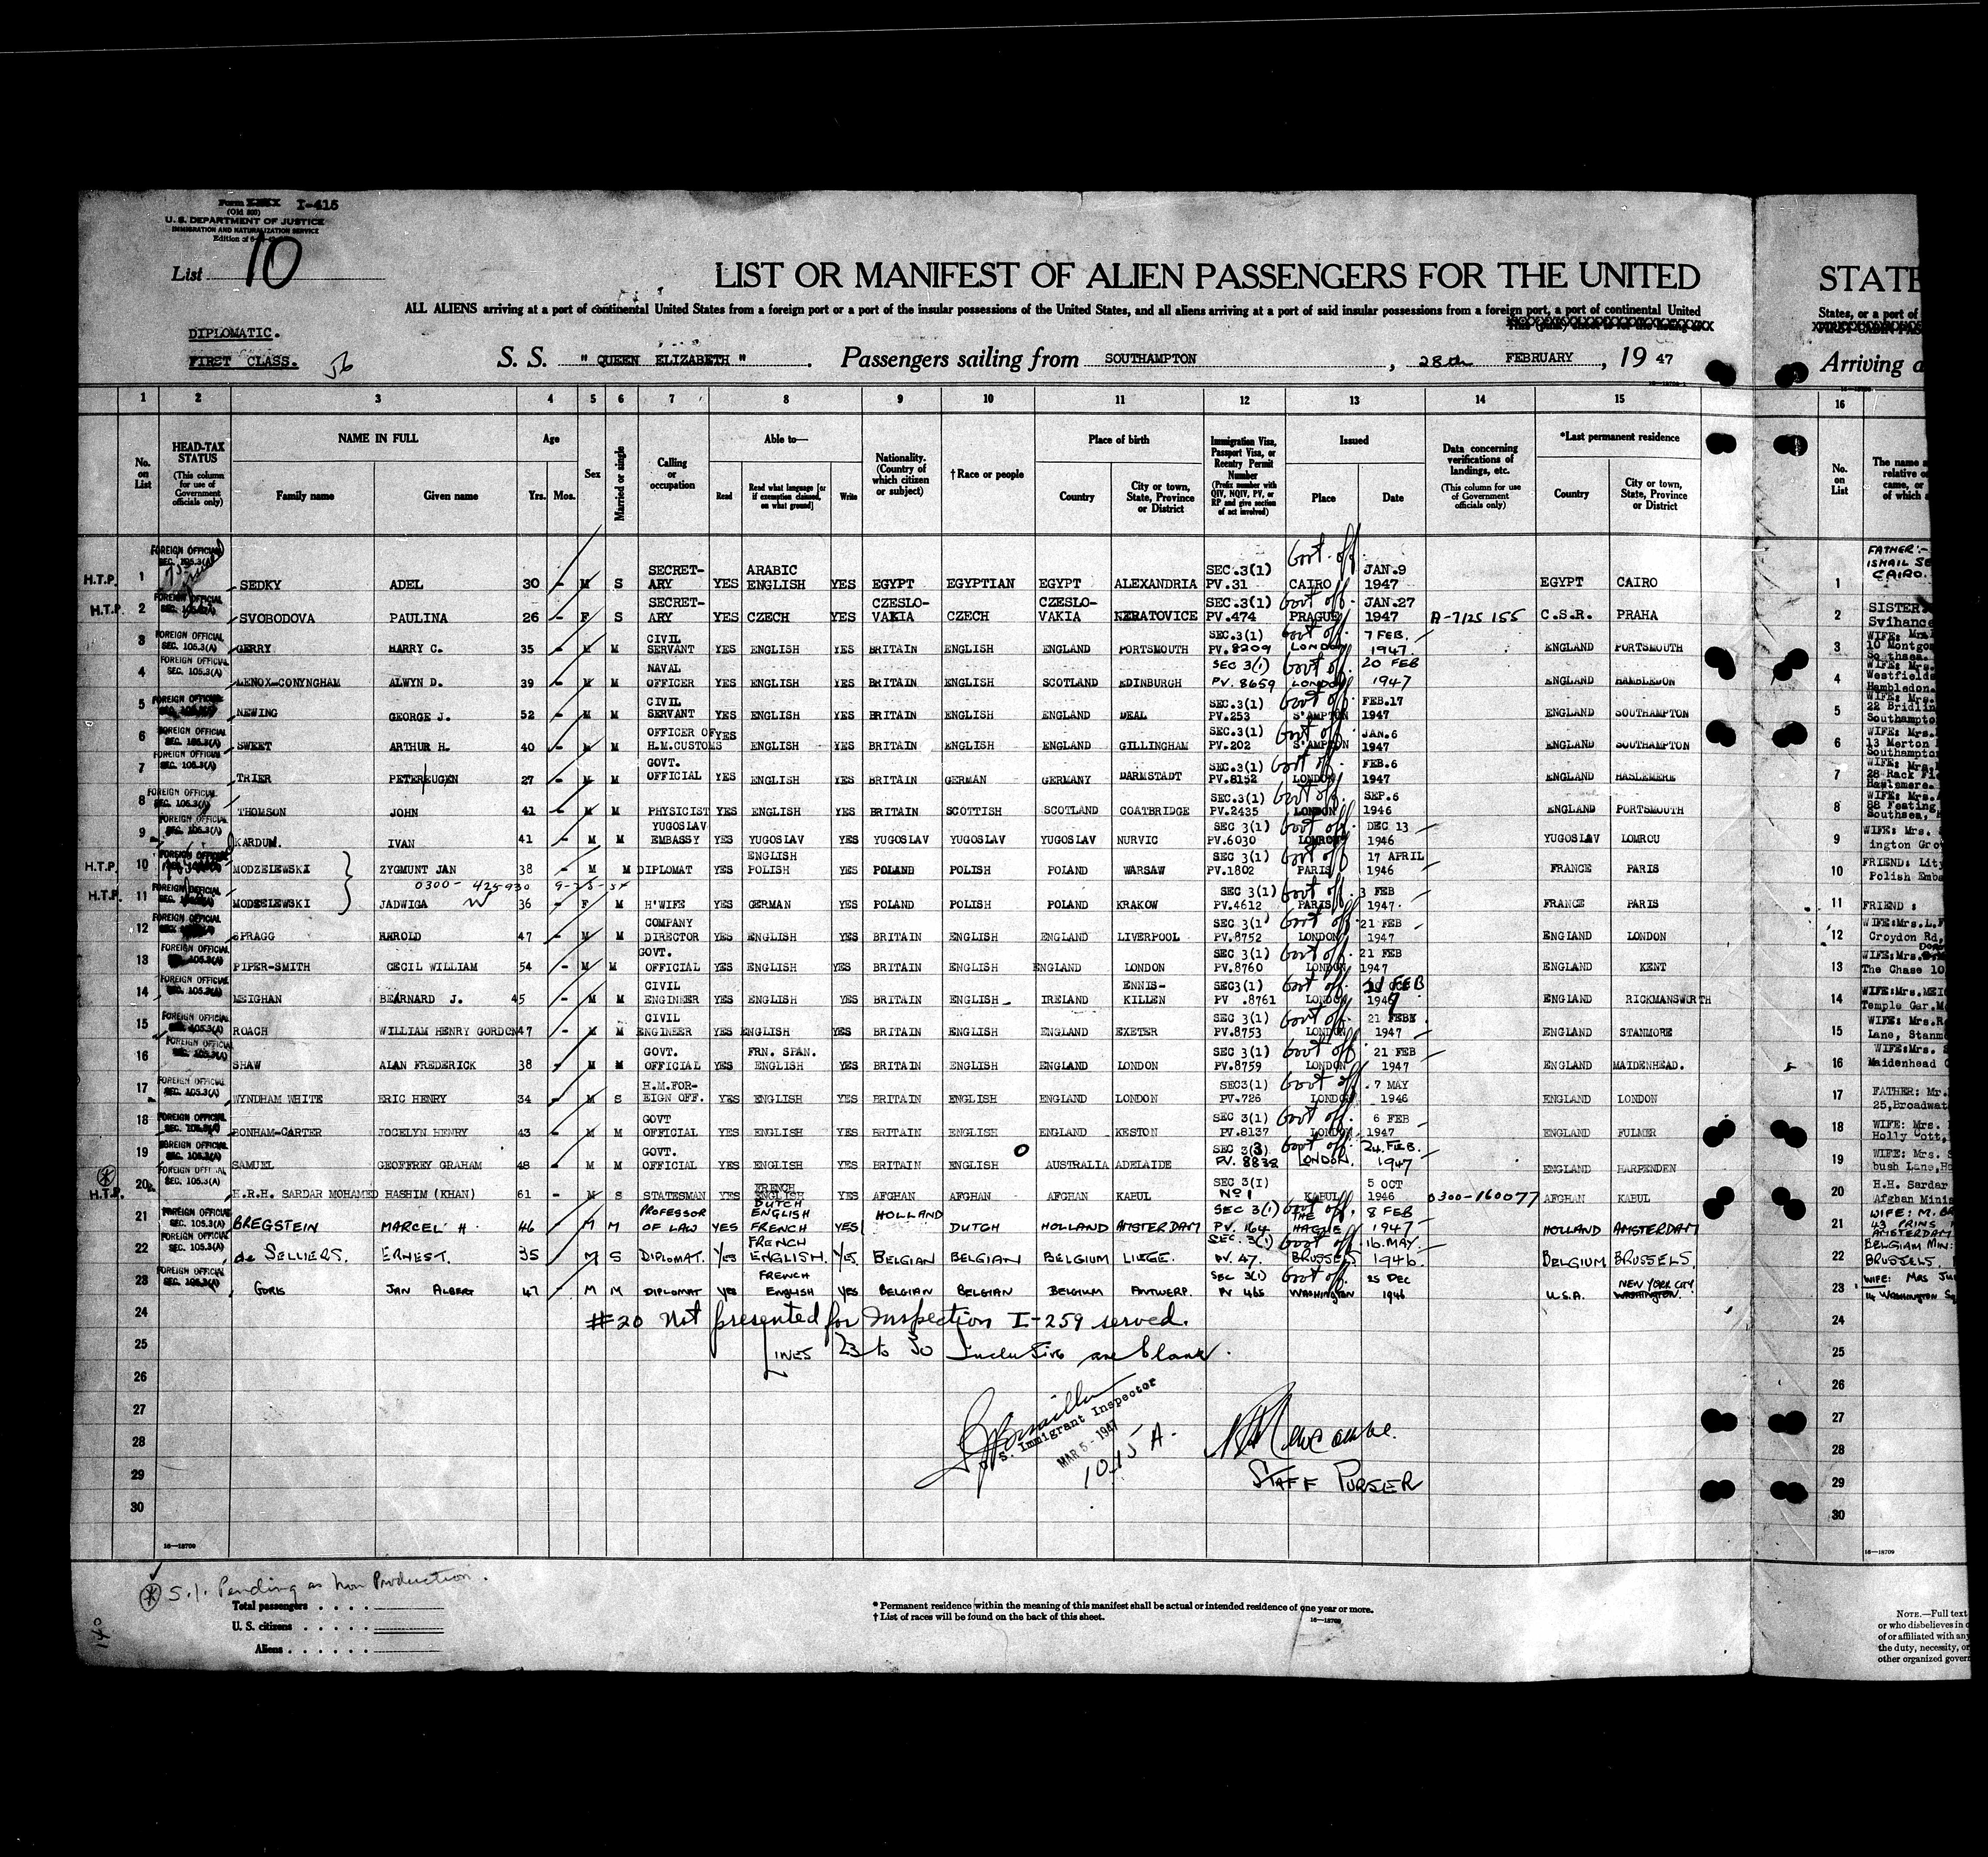 Form I-415
(Old 500)
U. S. DEPARTMENT OF JUSTICE
IMMIGRATION AND NATURALIZATION SERVICE
List 10
LIST OR MANIFEST OF ALIEN PASSENGERS FOR THE UNITED
STATE
ALL ALIENS arriving at a port of continental United States from a foreign port or a port of the insular possessions of the United States, and all aliens arriving at a port of said insular possessions from a foreign port, a port of continental United
States, or a port of
DIPLOMATIC.
FIRST CLASS. 56
S. S. " QUEEN ELIZABETH " . Passengers sailing from SOUTHAMPTON , 28th FEBRUARY , 19 47
Arriving a
1 2 3 4 5 6 7 8 9 10 11 12 13 14 15 16
No. on List
HEAD-TAX STATUS (This column for use of Government officials only)
NAME IN FULL Family name Given name
Age Yrs. Mos.
Sex
Married or single
Calling or occupation
Able to— Read Read what language [or if exemption claimed, on what ground] Write
Nationality. (Country of which citizen or subject)
†Race or people
Place of birth Country City or town, State, Province or District
Immigration Visa, Passport Visa, or Reentry Permit Number (Prefix number with QIV, NQIV, PV, or RP and give section of act involved)
Issued Place Date
Data concerning verifications of landings, etc. (This column for use of Government officials only)
*Last permanent residence Country City or town, State, Province or District
No. on List
The name a relative o came, or of which
H.T.P. 1 FOREIGN OFFICIAL SEC. 105.3(A) SEDKY ADEL 30 - M S SECRET-ARY YES ARABIC ENGLISH YES EGYPT EGYPTIAN EGYPT ALEXANDRIA SEC.3(1) PV.31 Govt. off. CAIRO JAN.9 1947 EGYPT CAIRO 1 FATHER:- ISMAIL SE CAIRO.
H.T.P. 2 FOREIGN OFFICIAL SEC. 105.3(A) SVOBODOVA PAULINA 26 - F S SECRET-ARY YES CZECH YES CZESLO-VAKIA CZECH CZESLO-VAKIA NERATOVICE SEC.3(1) PV.474 Govt off. PRAGUE JAN.27 1947 A-7125 155 C.S.R. PRAHA 2 SISTER: Svihance
3 FOREIGN OFFICIAL SEC. 105.3(A) GERRY HARRY C. 35 - M M CIVIL SERVANT YES ENGLISH YES BRITAIN ENGLISH ENGLAND PORTSMOUTH SEC.3(1) PV.8209 Govt off. LONDON 7 FEB. 1947 ENGLAND PORTSMOUTH 3 WIFE: Mrs 10 Montgom Southsea.
4 FOREIGN OFFICIAL SEC. 105.3(A) LENOX-CONYNGHAM ALWYN D. 39 - M M NAVAL OFFICER YES ENGLISH YES BRITAIN ENGLISH SCOTLAND EDINBURGH SEC 3(1) PV. 8659 Govt off. LONDON 20 FEB 1947 ENGLAND HAMBLEDON 4 WIFE: Mrs. Westfields Hambledon.
5 FOREIGN OFFICIAL NEWING GEORGE J. 52 - M M CIVIL SERVANT YES ENGLISH YES BRITAIN ENGLISH ENGLAND DEAL SEC.3(1) PV.253 Govt off. S'AMPTON FEB.17 1947 ENGLAND SOUTHAMPTON 5 WIFE: Mrs. 22 Bridlin Southampto
6 FOREIGN OFFICIAL SEC. 105.3(A) SWEET ARTHUR H. 40 - M M OFFICER OF H.M.CUSTOMS YES ENGLISH YES BRITAIN ENGLISH ENGLAND GILLINGHAM SEC.3(1) PV.202 Govt off. S'AMPTON JAN.6 1947 ENGLAND SOUTHAMPTON 6 WIFE: Mrs. 13 Merton Southampto
7 FOREIGN OFFICIAL SEC. 105.3(A) TRIER PETER EUGEN 27 - M M GOVT. OFFICIAL YES ENGLISH YES BRITAIN GERMAN GERMANY DARMSTADT SEC.3(1) PV.8152 Govt off. LONDON FEB.6 1947 ENGLAND HASLEMERE 7 WIFE: Mrs. 28 Rack Haslemere
8 FOREIGN OFFICIAL SEC. 105.3(A) THOMSON JOHN 41 - M M PHYSICIST YES ENGLISH YES BRITAIN SCOTTISH SCOTLAND COATBRIDGE SEC.3(1) PV.2435 Govt off. LONDON SEP.6 1946 ENGLAND PORTSMOUTH 8 WIFE: Mrs. 88 Festing Southsea,
9 FOREIGN OFFICIAL SEC. 105.3(A) KARDUM. IVAN 41 - M M YUGOSLAV EMBASSY YES YUGOSLAV YES YUGOSLAV YUGOSLAV YUGOSLAV NURVIC SEC 3(1) PV.6030 Govt off. DEC 13 1946 YUGOSLAV LOMRCU 9 WIFE: Mrs. ington Gro
H.T.P. 10 FOREIGN OFFICIAL MODZELEWSKI ZYGMUNT JAN 38 - M M DIPLOMAT YES ENGLISH POLISH YES POLAND POLISH POLAND WARSAW SEC 3(1) PV.1802 Govt off. PARIS 17 APRIL 1946 FRANCE PARIS 10 FRIEND: Lit Polish Emba
0300- 425930
H.T.P. 11 FOREIGN OFFICIAL MODZELEWSKI JADWIGA 36 - F M H'WIFE YES GERMAN YES POLAND POLISH POLAND KRAKOW SEC 3(1) PV.4612 Govt off. PARIS 3 FEB 1947 FRANCE PARIS 11 FRIEND :
12 FOREIGN OFFICIAL SPRAGG HAROLD 47 - M M COMPANY DIRECTOR YES ENGLISH YES BRITAIN ENGLISH ENGLAND LIVERPOOL SEC 3(1) PV.8752 Govt off. LONDON 21 FEB 1947 ENGLAND LONDON 12 WIFE:Mrs.L.F Croydon Rd,
13 FOREIGN OFFICIAL SEC. 105.3(A) PIPER-SMITH CECIL WILLIAM 54 - M M GOVT. OFFICIAL YES ENGLISH YES BRITAIN ENGLISH ENGLAND LONDON SEC 3(1) PV.8760 Govt off. LONDON 21 FEB 1947 ENGLAND KENT 13 WIFE:Mrs. The Chase 10
14 FOREIGN OFFICIAL SEC. 105.3(A) MEIGHAN BEARNARD J. 45 - M M CIVIL ENGINEER YES ENGLISH YES BRITAIN ENGLISH IRELAND ENNIS-KILLEN SEC3(1) PV .8761 Govt off. LONDON 21 FEB 1947 ENGLAND RICKMANSWORTH 14 WIFE:Mrs.MEIG Temple Gar.
15 FOREIGN OFFICIAL SEC. 105.3(A) ROACH WILLIAM HENRY GORDON 47 - M M CIVIL ENGINEER YES ENGLISH YES BRITAIN ENGLISH ENGLAND EXETER SEC 3(1) PV.8753 Govt off. LONDON 21 FEB 1947 ENGLAND STANMORE 15 WIFE: Mrs.R Lane, Stanm
16 FOREIGN OFFICIAL SEC. 105.3(A) SHAW ALAN FREDERICK 38 - M M GOVT. OFFICIAL YES FRN. SPAN. ENGLISH YES BRITAIN ENGLISH ENGLAND LONDON SEC 3(1) PV.8759 Govt off. LONDON 21 FEB 1947 ENGLAND MAIDENHEAD. 16 WIFE:Mrs. Maidenhead
17 FOREIGN OFFICIAL SEC. 105.3(A) WYNDHAM WHITE ERIC HENRY 34 - M S H.M.FOR-EIGN OFF. YES ENGLISH YES BRITAIN ENGLISH ENGLAND LONDON SEC3(1) PV.726 Govt off. LONDON 7 MAY 1946 ENGLAND LONDON 17 FATHER: Mr. 25,Broadwat
18 FOREIGN OFFICIAL SEC. 105.3(A) BONHAM-CARTER JOCELYN HENRY 43 - M M GOVT OFFICIAL YES ENGLISH YES BRITAIN ENGLISH ENGLAND KESTON SEC 3(1) PV.8137 Govt off. LONDON 6 FEB 1947 ENGLAND FULMER 18 WIFE: Mrs. Holly Cott,
19 FOREIGN OFFICIAL SEC. 105.3(A) SAMUEL GEOFFREY GRAHAM 48 - M M GOVT. OFFICIAL YES ENGLISH YES BRITAIN ENGLISH AUSTRALIA ADELAIDE SEC 3(3) PV. 8838 Govt off. LONDON. 24. FEB. 1947 ENGLAND HARPENDEN 19 WIFE: Mrs. bush Lane,
H.T.P. 20 FOREIGN OFFICIAL SEC. 105.3(A) H.R.H. SARDAR MOHAMED HASHIM (KHAN) 61 - M S STATESMAN YES FRENCH ENGLISH YES AFGHAN AFGHAN AFGHAN KABUL SEC 3(1) No 1 KABUL 5 OCT 1946 0300-160077 AFGHAN KABUL 20 H.H. Sardar Afghan Minis
21 FOREIGN OFFICIAL SEC. 105.3(A) BREGSTEIN MARCEL H. 46 - M M PROFESSOR OF LAW YES DUTCH ENGLISH FRENCH YES HOLLAND DUTCH HOLLAND AMSTERDAM SEC 3(1) PV. 164 Govt off. THE HAGUE 8 FEB 1947 HOLLAND AMSTERDAM 21 WIFE: M. BR 43 PRINS AMSTERDAM
22 FOREIGN OFFICIAL SEC. 105.3(A) de SELLIERS. ERNEST. 35 M S DIPLOMAT. YES FRENCH ENGLISH. YES BELGIAN BELGIAN BELGIUM LIEGE. SEC. 3(1) PV. 47. Govt off. BRUSSELS 16.MAY. 1946. BELGIUM BRUSSELS. 22 BELGIAN MIN: BRUSSELS.
23 FOREIGN OFFICIAL SEC. 105.3(A) GORIS JAN ALBERT 47 - M M DIPLOMAT YES FRENCH ENGLISH YES BELGIAN BELGIAN BELGIUM ANTWERP. SEC 3(1) PV 465 Govt off. WASHINGTON 25 DEC 1946 U.S.A. NEW YORK CITY WASHINGTON. 23 WIFE: MRS JU 14 WASHINGTON SQ
24 #20 Not presented for Inspection I-259 served. 24
25 LINES 23 to 30 Inclusive are blank. 25
26 26
27 U. S. Immigrant Inspector 27
28 MAR 5 - 1947 28
29 10 45 A. STAFF PURSER 29
30 30
16—18709
16—18709
S.I. Pending as Non Production.
Total passengers . . . .
U. S. citizens . . . . .
Aliens . . . . . .
140
* Permanent residence within the meaning of this manifest shall be actual or intended residence of one year or more.
† List of races will be found on the back of this sheet.
16—18709
NOTE.—Full text
or who disbelieves in o
of or affiliated with any
the duty, necessity, or
other organized govern